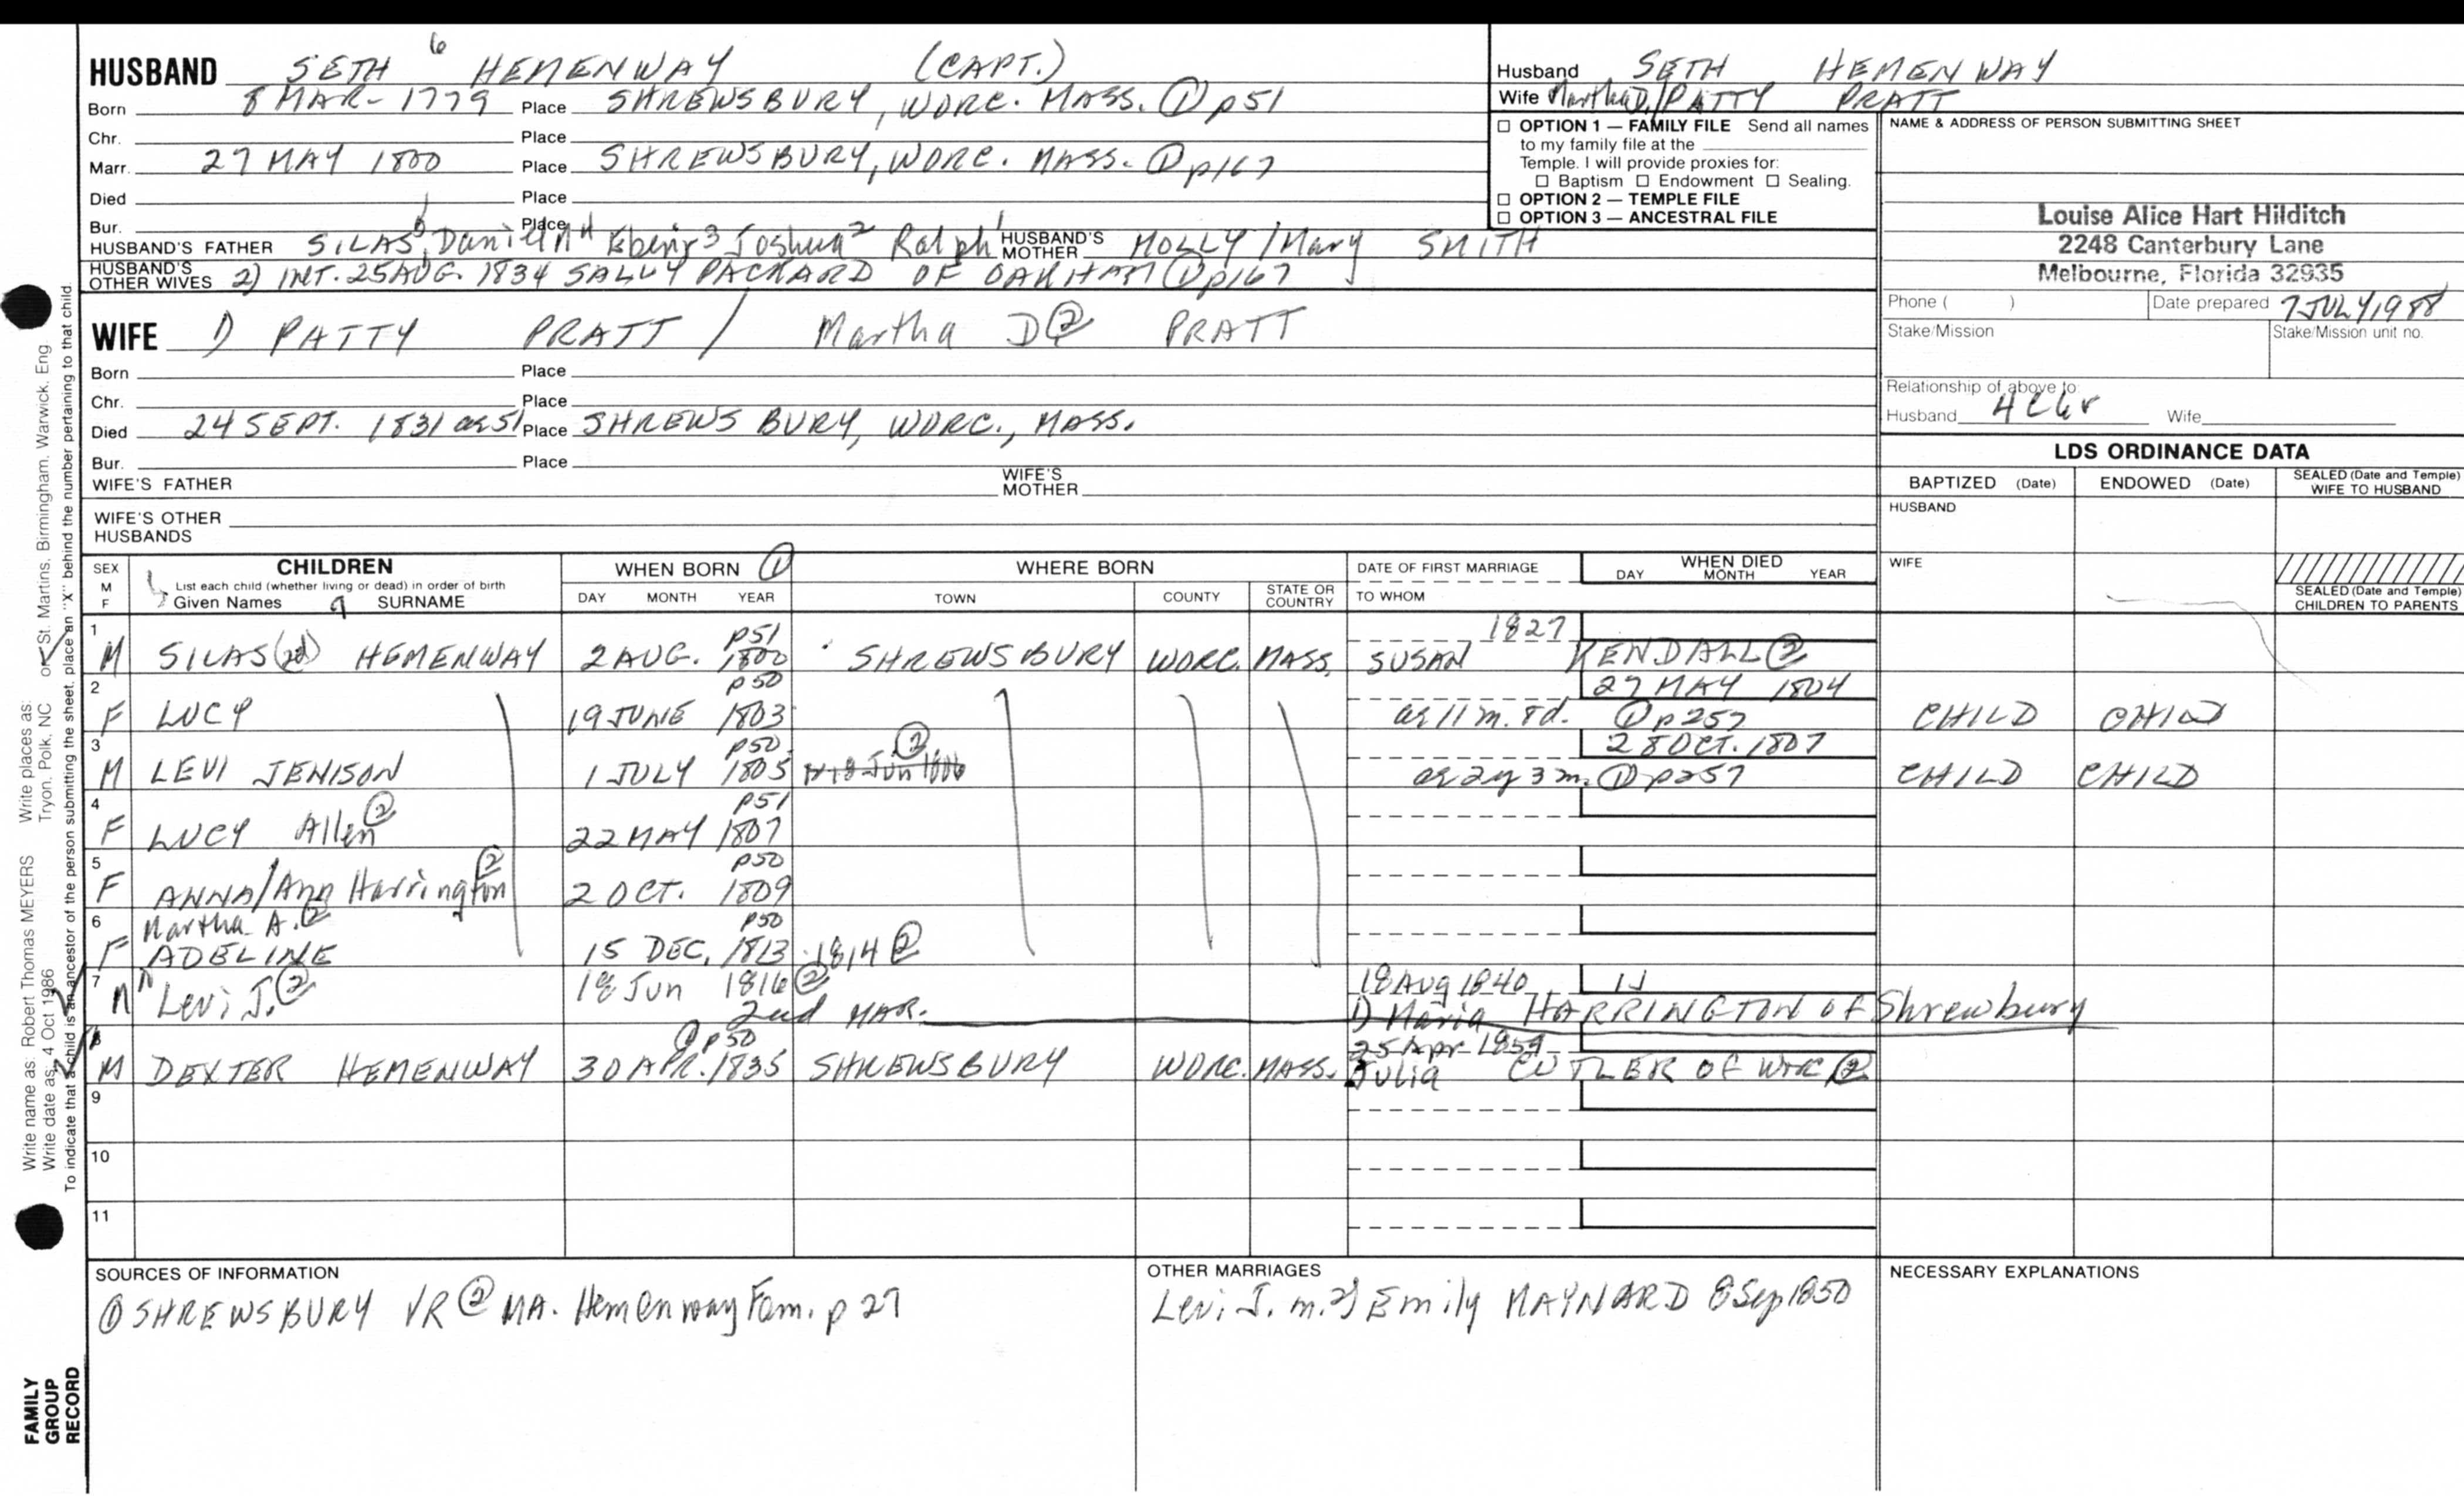 HUSBAND SETH 6 HEMENWAY (CAPT.)
Born 8 MAR- 1779 Place SHREWSBURY, WORC. MASS. ① p51
Chr. Place
Marr. 27 MAY 1800 Place SHREWSBURY, WORC. MASS. ① p167
Died Place
Bur. Place
HUSBAND'S FATHER SILAS5, Daniel 4 Ebenr3 Joshua2 Ralph1 HUSBAND'S MOTHER MOLLY/Mary SMITH
HUSBAND'S OTHER WIVES 2) INT. 25 AUG. 1834 SALLY PACKARD OF OAKHAM ① p167
WIFE 1) PATTY PRATT / Martha D② PRATT
Born Place
Chr. Place
Died 24 SEPT. 1831 ae 51 Place SHREWSBURY, WORC., MASS.
Bur. Place
WIFE'S FATHER WIFE'S MOTHER
WIFE'S OTHER HUSBANDS
Husband SETH HEMENWAY
Wife Martha D./PATTY PRATT
☐ OPTION 1 — FAMILY FILE Send all names
to my family file at the
Temple. I will provide proxies for:
☐ Baptism ☐ Endowment ☐ Sealing.
☐ OPTION 2 — TEMPLE FILE
☐ OPTION 3 — ANCESTRAL FILE
NAME & ADDRESS OF PERSON SUBMITTING SHEET
Louise Alice Hart Hilditch
2248 Canterbury Lane
Melbourne, Florida 32935
Phone ( ) Date prepared 7 JULY 1988
Stake/Mission Stake/Mission unit no.
Relationship of above to:
Husband Wife
LDS ORDINANCE DATA
BAPTIZED (Date) ENDOWED (Date) SEALED (Date and Temple) WIFE TO HUSBAND
HUSBAND
WIFE
SEALED (Date and Temple) CHILDREN TO PARENTS
SEX M F
CHILDREN
List each child (whether living or dead) in order of birth
Given Names SURNAME
WHEN BORN ①
DAY MONTH YEAR
WHERE BORN
TOWN COUNTY STATE OR COUNTRY
DATE OF FIRST MARRIAGE
TO WHOM
WHEN DIED
DAY MONTH YEAR
1 p51 1827
M SILAS (2d) HEMENWAY 2 AUG. 1800 SHREWSBURY WORC. MASS. SUSAN KENDALL②
2 p50 27 MAY 1804
F LUCY 19 JUNE 1803 ae 11 m. 8d. ① p257 CHILD CHILD
3 p50 ② 28 OCT. 1807
M LEVI JENISON 1 JULY 1805 18 Jun 1806 ae 2y 3 m. ① p257 CHILD CHILD
4 p51
F LUCY Allen② 22 MAY 1807
5 p50
F ANNA/Ann Harrington② 2 OCT. 1809
6 Martha A.② p50
F ADELINE 15 DEC. 1813 1814②
7 18 Aug 1840
M Levi J.② 18 Jun 1816② 1) Maria HARRINGTON of Shrewbury
2nd MAR.
8 ① p50 25 Apr 1859
M DEXTER HEMENWAY 30 APR. 1835 SHREWSBURY WORC. MASS. Julia CUTLER OF WRC②
9
10
11
SOURCES OF INFORMATION
① SHREWSBURY VR ② MA. Hemenway Fam. p 27
OTHER MARRIAGES
Levi J. m. 2) Emily MAYNARD 8 Sep 1850
NECESSARY EXPLANATIONS
Write name as: Robert Thomas MEYERS Write places as:
Write date as: 4 Oct 1986 Tryon, Polk, NC or St. Martins, Birmingham, Warwick, Eng
To indicate that a child is an ancestor of the person submitting the sheet, place an "X" behind the number pertaining to that child
FAMILY
GROUP
RECORD